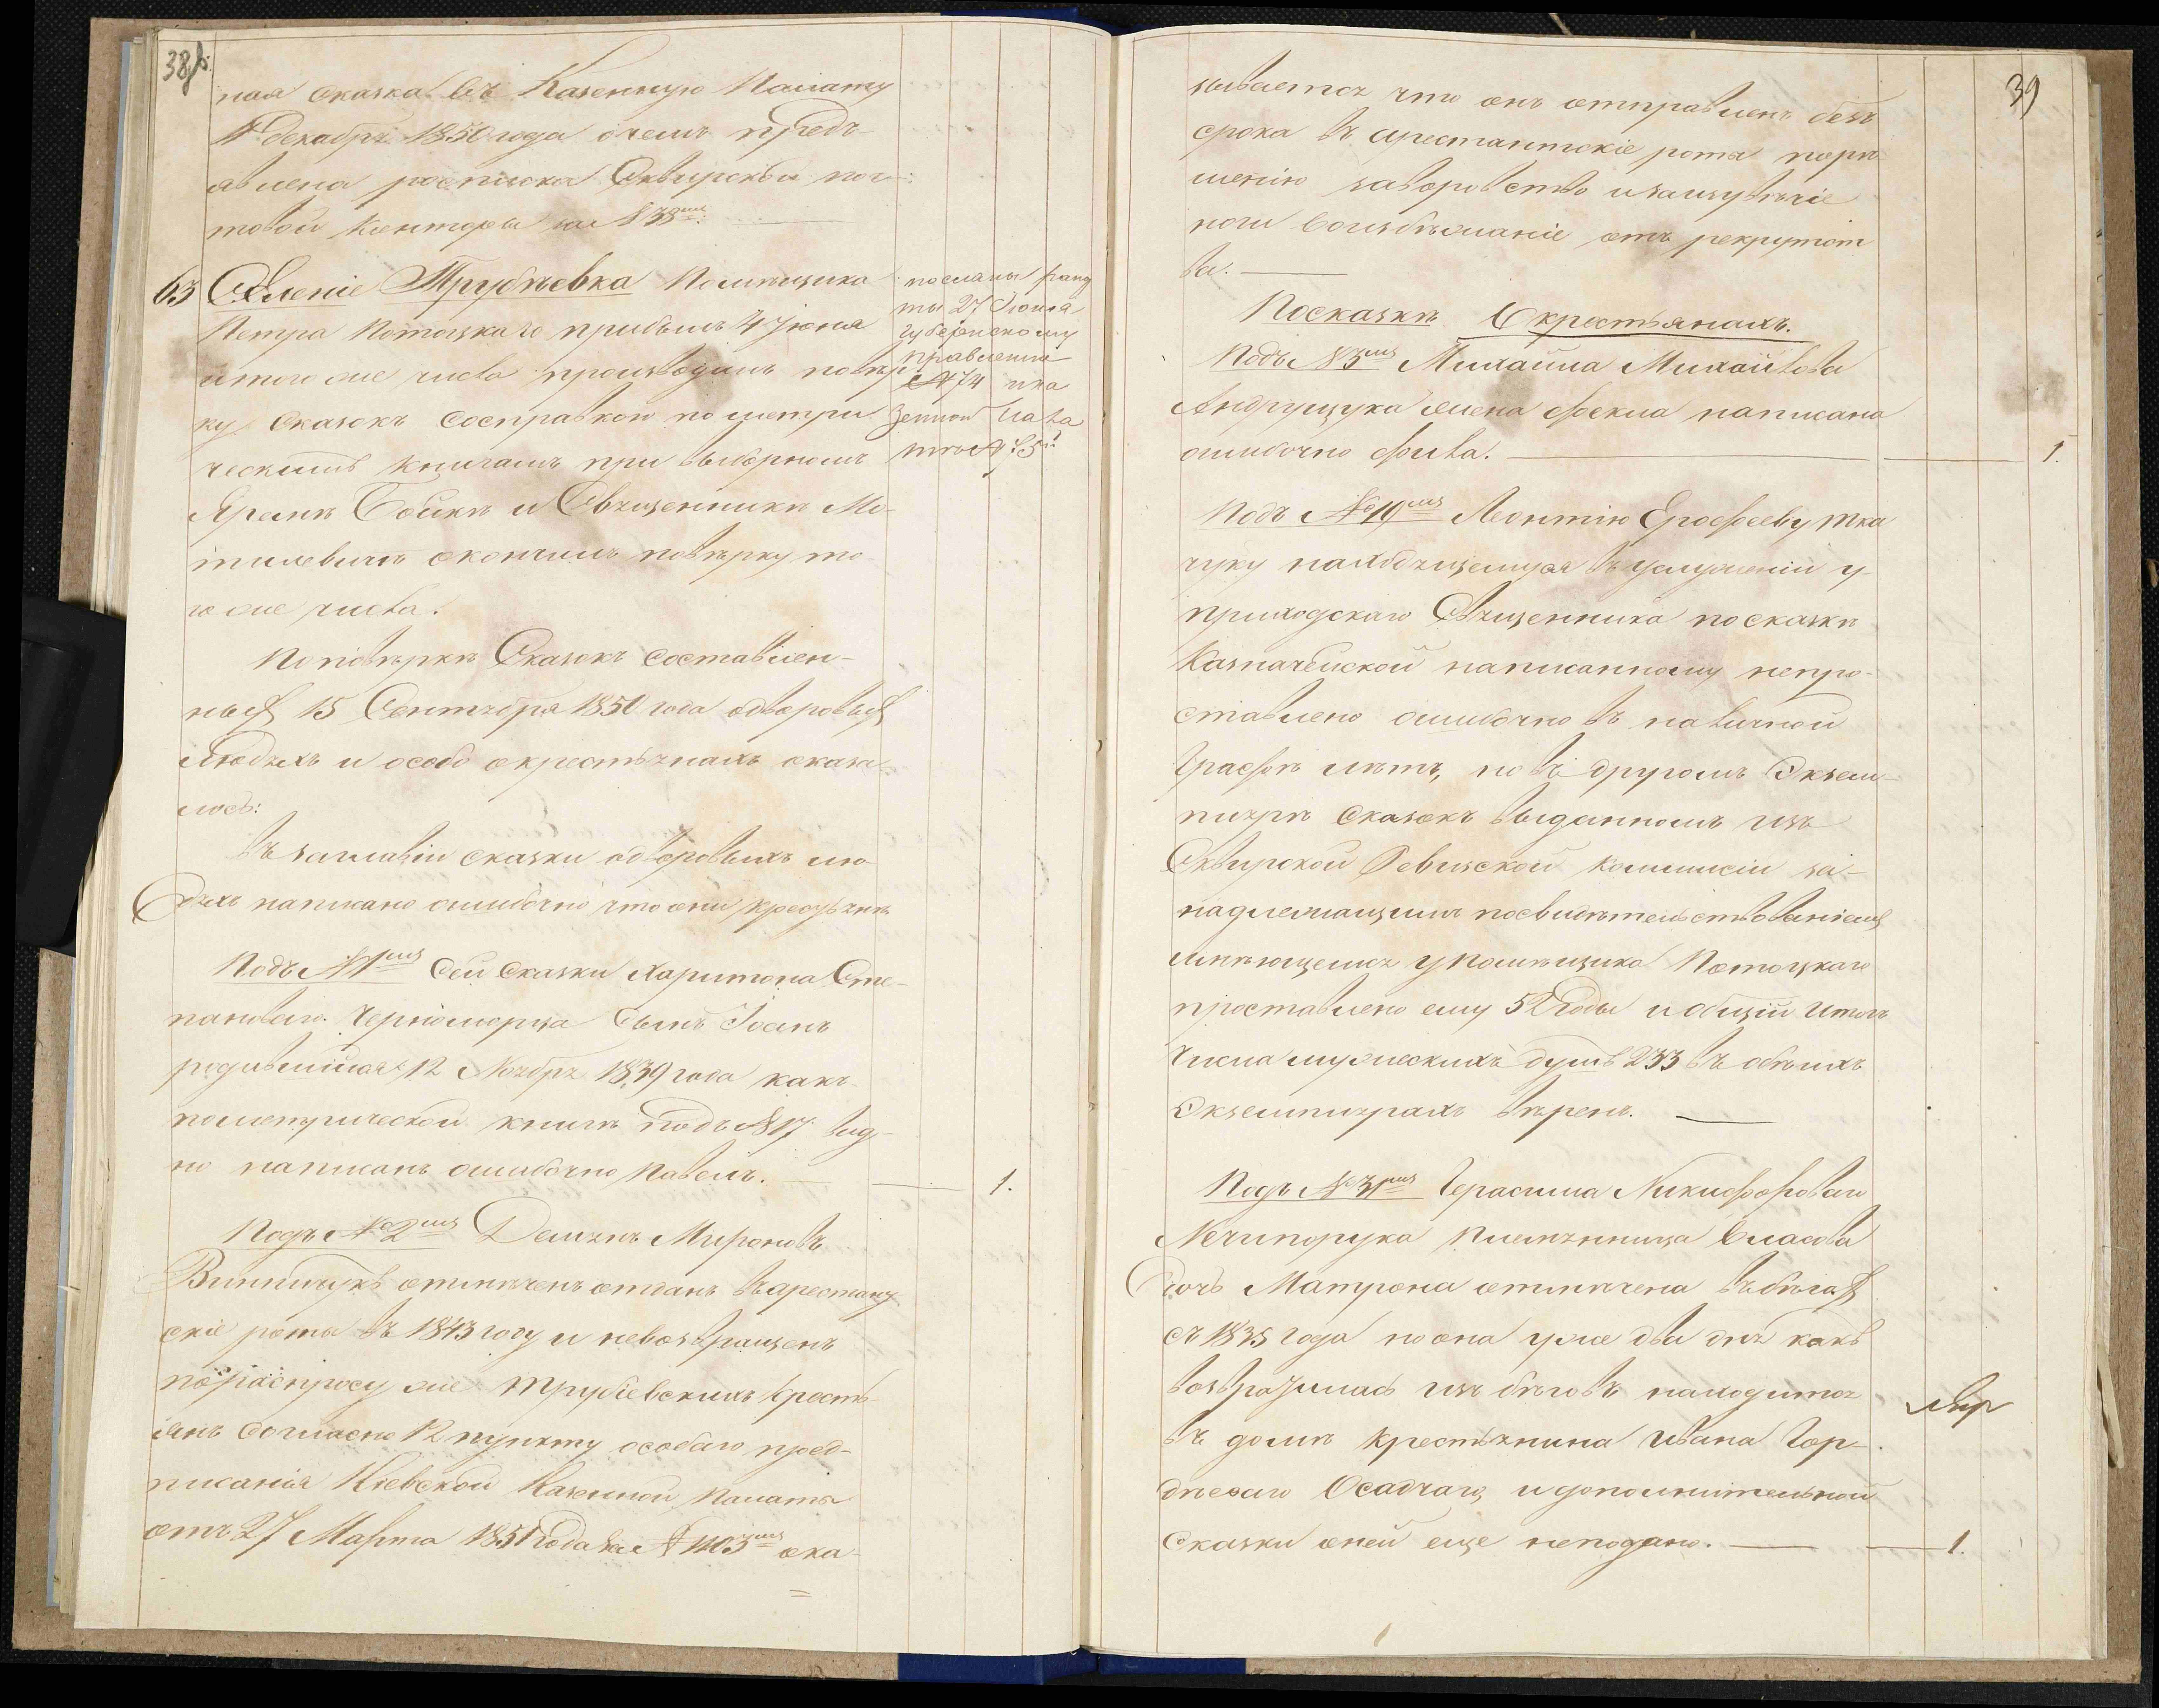 38 б.
ная сказка въ Казенную Палату
декабря 1850 года о чемъ предъ-
явлена росписка Сквирской поч-
товой Конторы за №
63 Селеніе Трубѣевка Помѣщика
Петра Потоцкаго прибылъ 4 іюня
и того же числа производилъ повѣр
ку сказокъ со справкою по метри
ческимъ книгамъ при выборномъ
Яремѣ Бойкѣ и Священникѣ Мо-
тилевичѣ окончилъ повѣрку то
го же числа.
По повѣркѣ Сказокъ составлен-
ныхъ 15 Сентября 1850 года о дворовыхъ
людяхъ и особо о крестьянахъ оказа
лось:
Въ заглавіи сказки о дворовыхъ лю
дяхъ написано ошибочно что они крестьяне
Подъ №1мъ сей Сказки Харитона Сте-
пановаго Черноморца сынъ Іоанъ
родившійся 12 Ноября 1839 года какъ
по метрической книгѣ подъ №17 вид-
но написанъ ошибочно Павелъ. 1.
Подъ №2мъ Демянъ Мироновъ
Винничукъ отмѣченъ отданъ въ арестант
скіе роты въ 1843 году и невозвращенъ
по распросу же Трубіевскихъ крестъ-
янъ согласно 12 пункту особаго пред-
писанія Кіевской Казенной Палаты
отъ 27 Марта 1851 года за № ока-
посланы рапор
ты 27 Іюня
губернскому
правленію
№ 474 и ка
зенной пала
тѣ №
39
зывается что онъ отправленъ безъ
срока въ арестантскіе рота порѣ
шенію за воровство и за изувѣчіе
ноги во избѣжаніе отъ рекрутст
ва.
По сказкѣ О крестьянахъ.
Подъ №3мъ Михайла Михайлова
Андрущука жена Фекла написана
ошибочно 1.
Подъ №19мъ Леонтію Ерофееву Тка
чуку находящемуся въ услуженіи у
приходскаго Священника по сказкѣ
Казначейской написанному непро-
ставлено ошибочно въ наличной
Графѣ лѣтъ, но въ другомъ Экзем-
плярѣ сказокъ выданномъ изъ
Сквирской Ревизской Коммисіи за-
надлежащимъ посвидѣтельствованіемъ
имѣющемся у помѣщика Потоцкаго
проставлено ему 52 годы и общій итогъ
числа мужескихъ душъ 233 въ обѣихъ
Экземплярахъ вѣренъ.
Подъ №31мъ Герасима Никифороваго
Нечипорука племянница Власова
дочь Матрона отмѣчена въ бѣгахъ
съ 1835 года но она уже два дня какъ
возвратилась изъ бѣговъ находится
въ домѣ крестьянина Ивана Гор-
дѣеваго Осадчаго и дополнительной
сказки о ней еще неподано. 1.